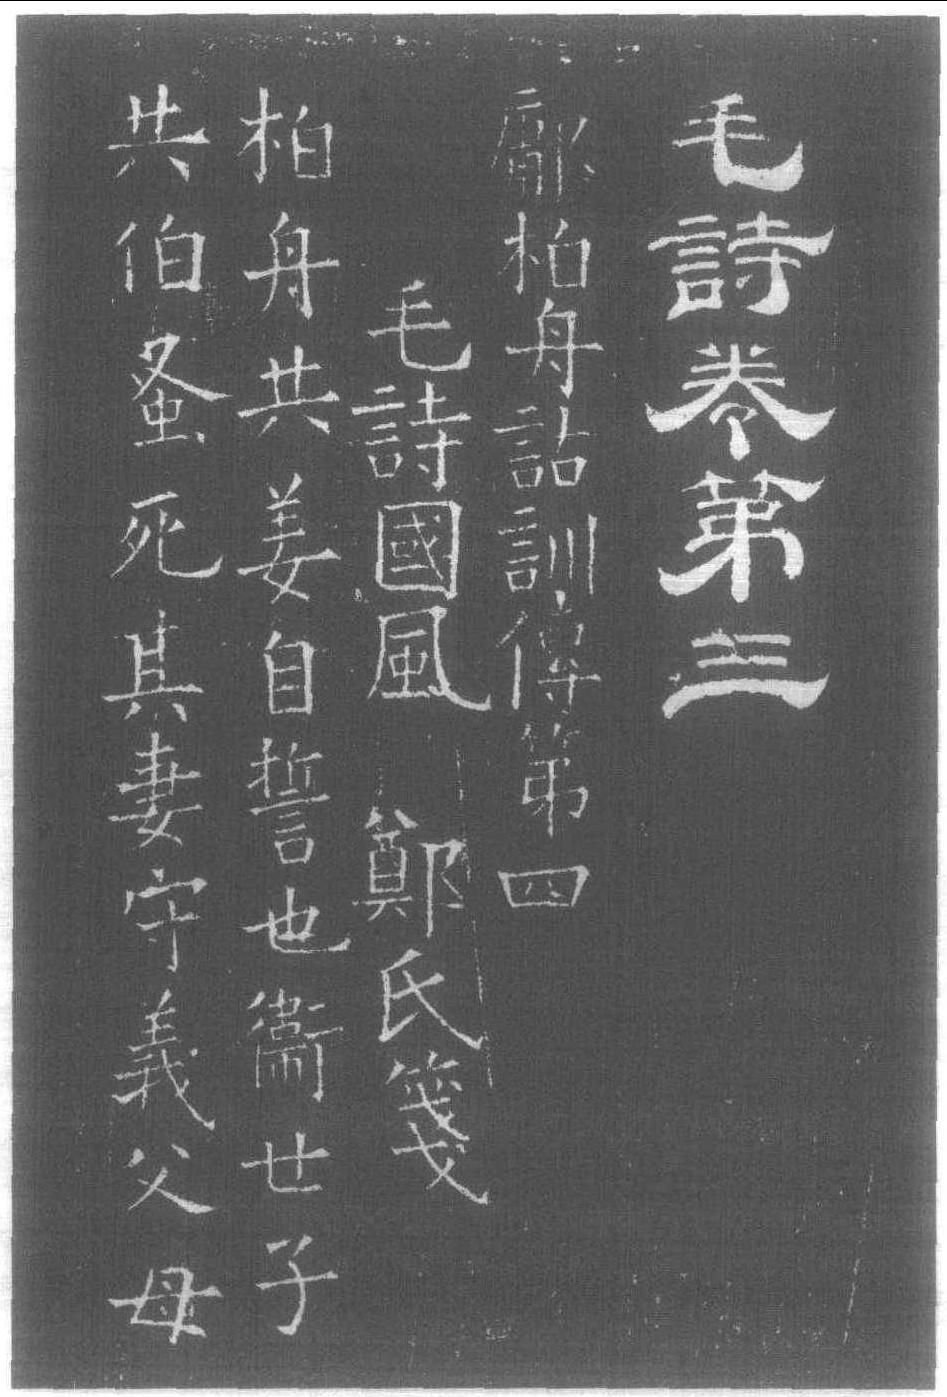 毛詩卷第三
鄘柏舟詁訓傳第四
毛詩國風 鄭氏箋
柏舟共姜自誓也衞世子
共伯蚤死其妻守義父母